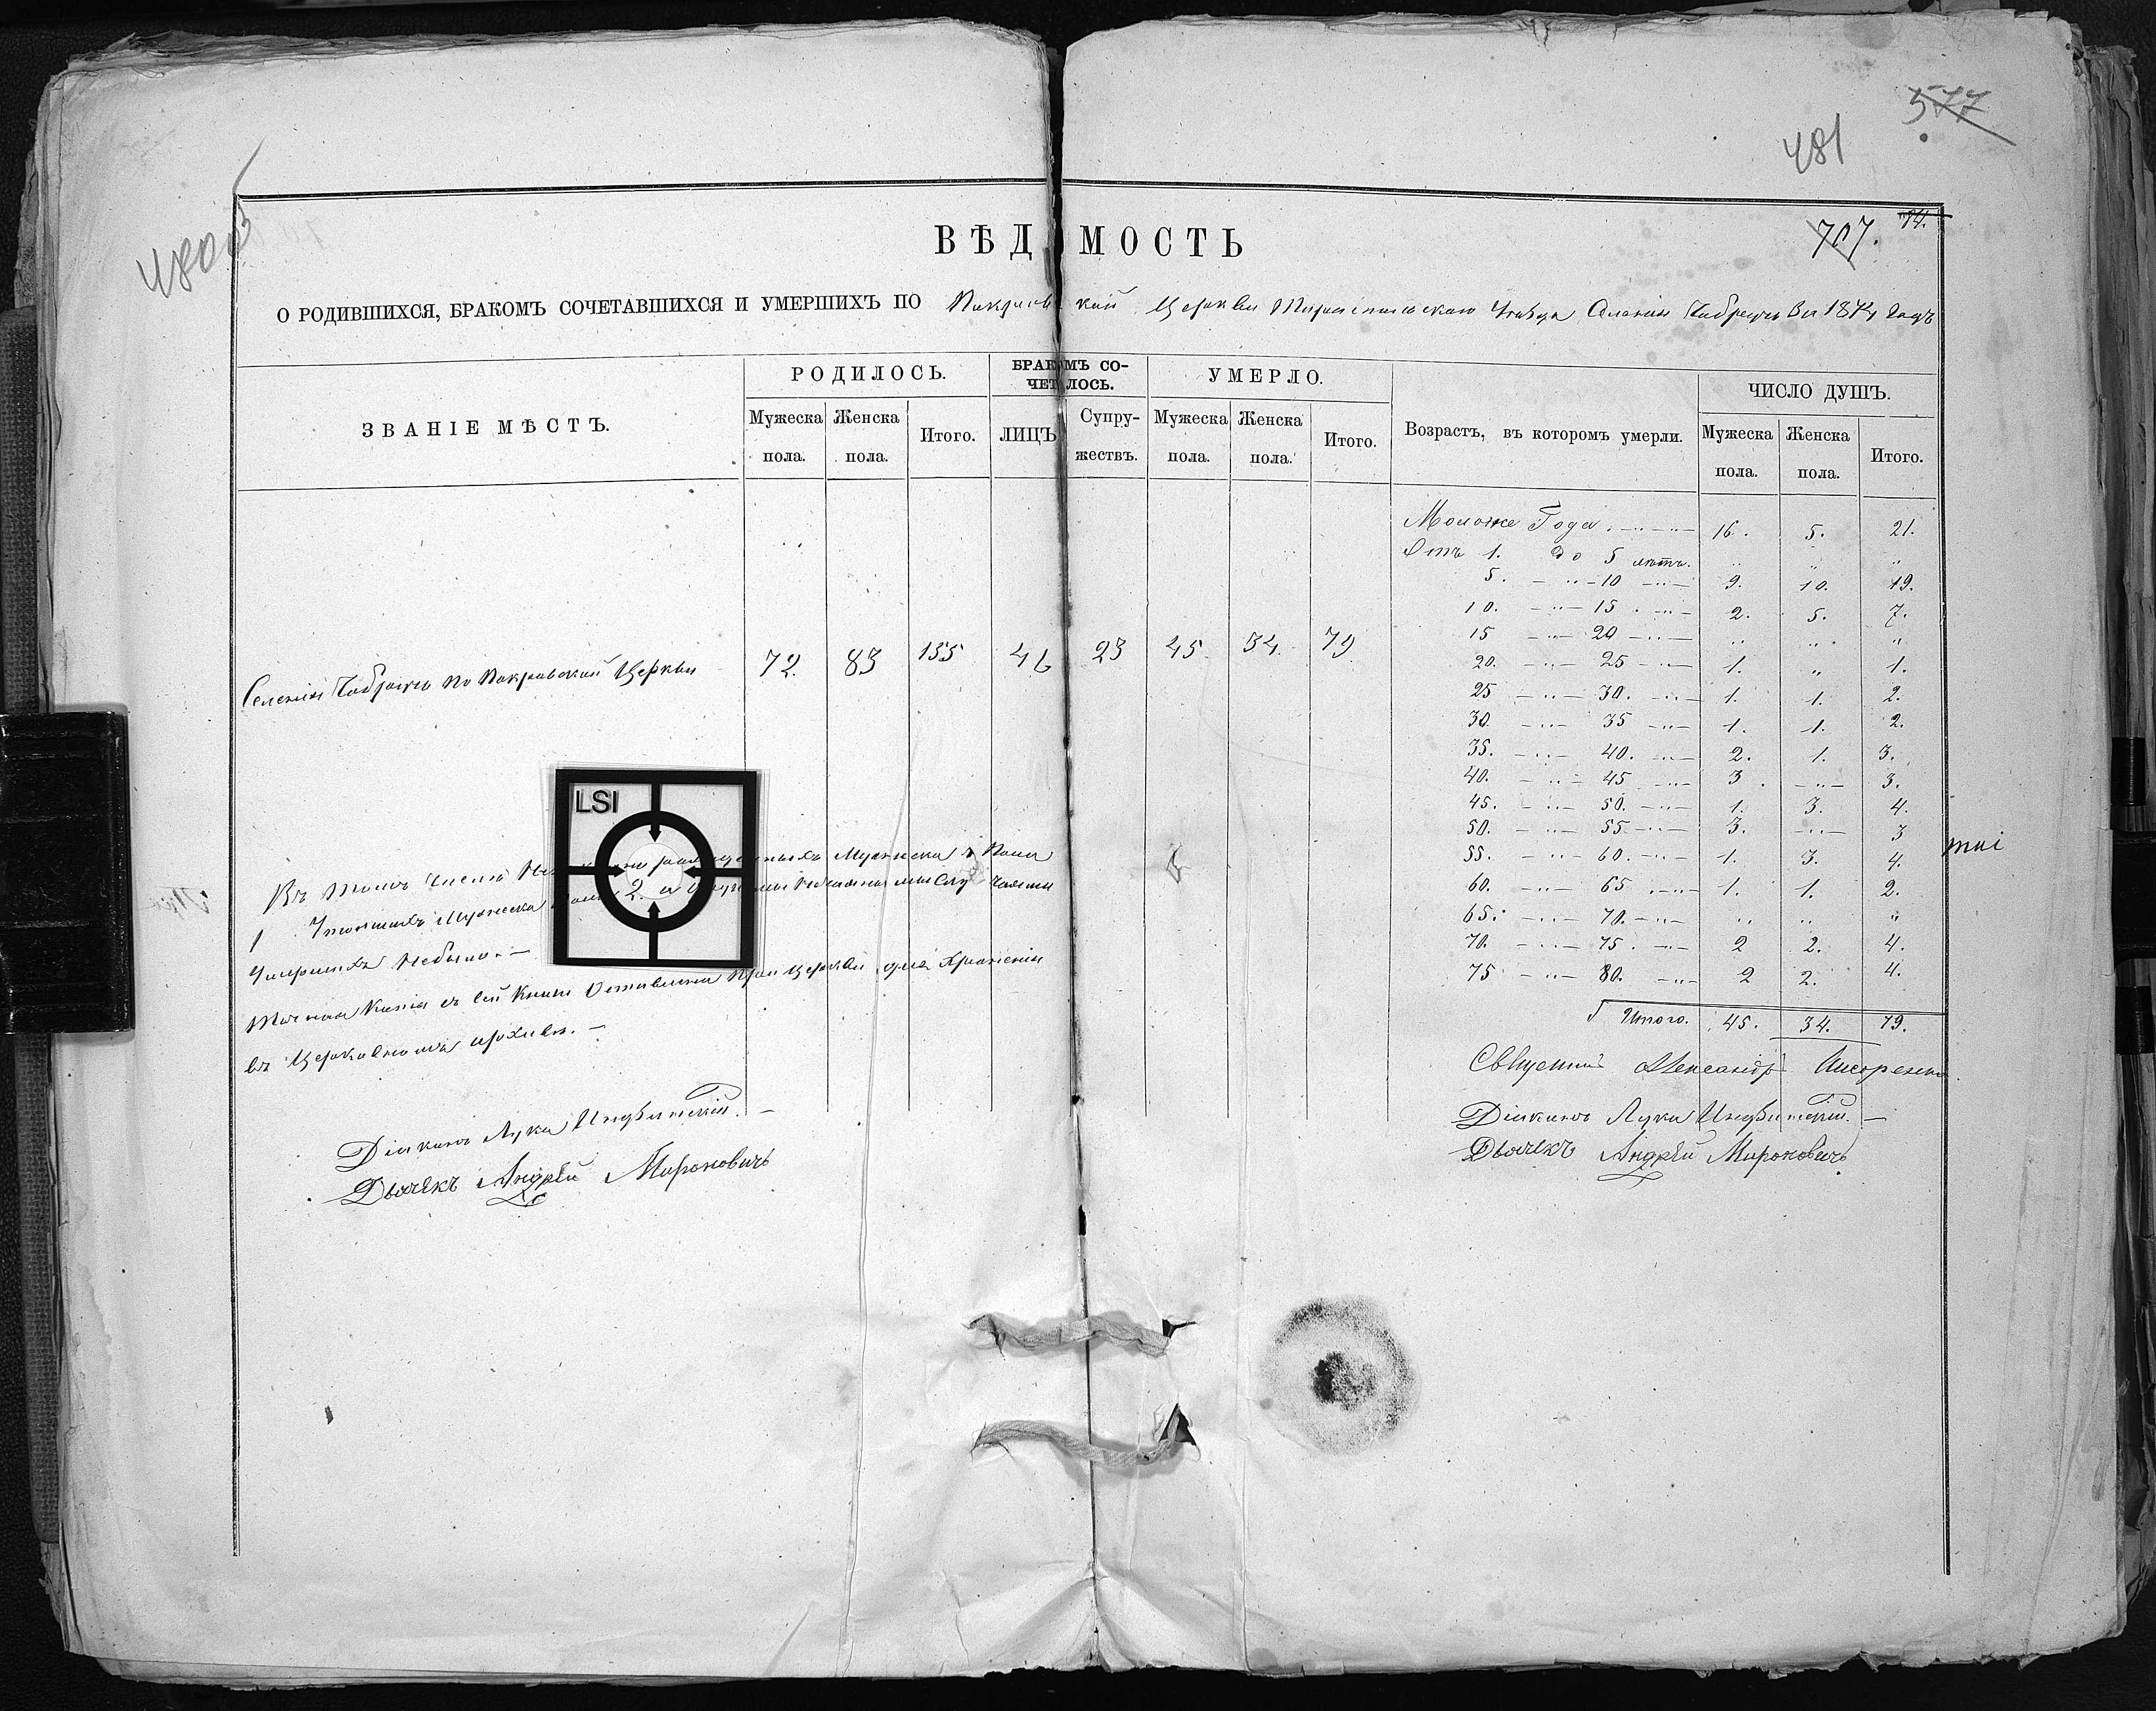 577
481
480об
ВѢДОМОСТЬ
707. 74.
О РОДИВШИХСЯ, БРАКОМЪ СОЧЕТАВШИХСЯ И УМЕРШИХЪ ПО Покровской Церкви Тираспольскаго Уѣзда Селенія Чобручъ За 1874 Годъ
ЗВАНІЕ МѢСТЪ.
РОДИЛОСЬ.
Мужеска пола.
Женска пола.
Итого.
БРАКОМЪ СОЧЕТАЛОСЬ.
ЛИЦЪ
Супружествъ.
УМЕРЛО.
Мужеска пола.
Женска пола.
Итого.
Возрастъ, въ которомъ умерли.
ЧИСЛО ДУШЪ.
Мужеска пола.
Женска пола.
Итого.
Селенія Чобручъ по Покровской Церкви 72. 83 155 46 23 45 34. 79
Моложе Года 16. 5. 21.
Отъ 1. до 5 лѣтъ. " " "
5. - " - 10 - " - 9. 10. 19.
10. - " - 15 - " - 2. 5. 7.
15 - " - 20 - " - " " "
20. - " - 25 - " - 1. " 1.
25 - " - 30. - " - 1. 1. 2.
30. - " - 35 - " - 1. 1. 2.
35. - " - 40. - " - 2. 1. 3.
40. - " - 45 - " - 3. - " - 3.
45. - " - 50. - " - 1. 3. 4.
50. - " - 55. - " - 3. - " - 3
55. - " - 60. - " - 1. 3. 4.
60. - " - 65 - " - 1. 1. 2.
65. - " - 70. - " - " " "
70. - " - 75. - " - 2 2. 4.
75 - " - 80. - " - 2 2. 4.
Итого. 45. 34. 79.
LSI
Въ томъ числѣ Мужеска Пола
1 Мужеска 2. и
Умершихъ Небыло. —
Точная Копія съ сей Книги Оставлена При Церкви для Храненія
въ Церковномъ архивѣ. —
Діаконъ Лука
Дьячекъ Андрей Мироновичъ
Священникъ Александръ
Діаконъ Лука
Дьячекъ Андрей Мироновичъ